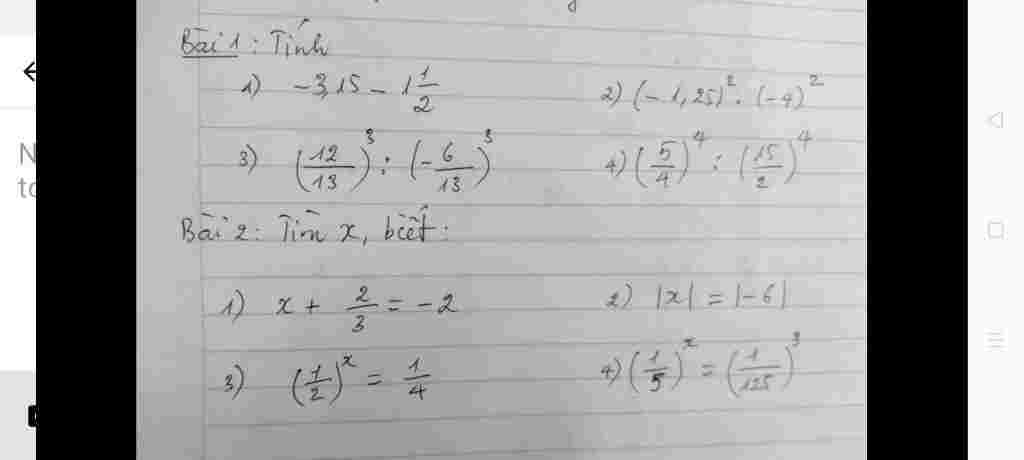 Bài 1: Tính
1) -3,15 - 1 1/2 2) (-1,25)² . (-4)²
3) (12/13)³ : (-6/13)³ 4) (5/4)⁴ : (15/2)⁴
Bài 2: Tìm x, biết:
1) x + 2/3 = -2 2) |x| = |-6|
3) (1/2)ˣ = 1/4 4) (1/5)ˣ = (1/125)³